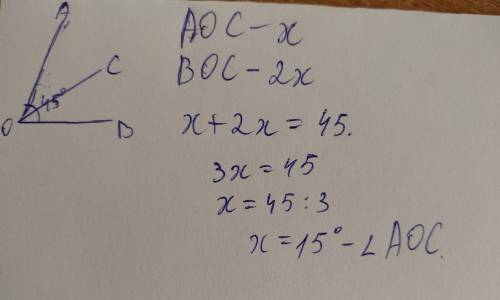 A
C
45°
O
B
AOC – x
BOC – 2x
x + 2x = 45.
3x = 45
x = 45 : 3
x = 15° – ∠AOC.